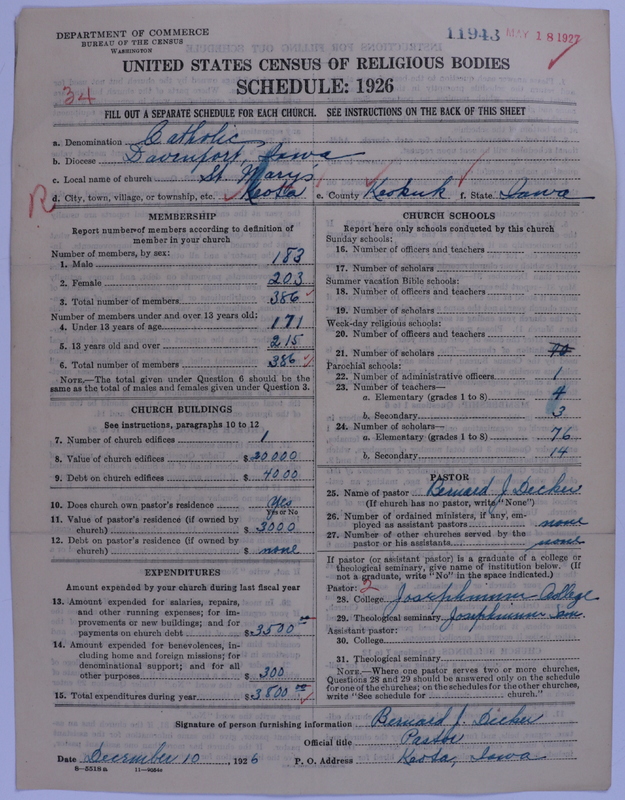 DEPARTMENT OF COMMERCE
BUREAU OF THE CENSUS
WASHINGTON
11943 MAY 18 1927
UNITED STATES CENSUS OF RELIGIOUS BODIES
SCHEDULE: 1926
34
FILL OUT A SEPARATE SCHEDULE FOR EACH CHURCH. SEE INSTRUCTIONS ON THE BACK OF THIS SHEET
a. Denomination Catholic
b. Diocese Davenport, Iowa
c. Local name of church St. Marys
R d. City, town, village, or township, etc. Keota e. County Keokuk f. State Iowa
MEMBERSHIP
Report number of members according to definition of
member in your church
Number of members, by sex:
1. Male 183
2. Female 203
3. Total number of members 386
Number of members under and over 13 years old:
4. Under 13 years of age 171
5. 13 years old and over 215
6. Total number of members 386
NOTE.—The total given under Question 6 should be the
same as the total of males and females given under Question 3.
CHURCH BUILDINGS
See instructions, paragraphs 10 to 12
7. Number of church edifices 1
8. Value of church edifices $ 20000
9. Debt on church edifices $ 4000
10. Does church own pastor's residence Yes
Yes or No
11. Value of pastor's residence (if owned by
church) $ 3000
12. Debt on pastor's residence (if owned by
church) $ none
EXPENDITURES
Amount expended by your church during last fiscal year
13. Amount expended for salaries, repairs,
and other running expenses; for im-
provements or new buildings; and for
payments on church debt $ 3500 00
14. Amount expended for benevolences, in-
cluding home and foreign missions; for
denominational support; and for all
other purposes $ 300
15. Total expenditures during year $ 3800 00
CHURCH SCHOOLS
Report here only schools conducted by this church
Sunday schools:
16. Number of officers and teachers
17. Number of scholars
Summer vacation Bible schools:
18. Number of officers and teachers
19. Number of scholars
Week-day religious schools:
20. Number of officers and teachers
21. Number of scholars
Parochial schools:
22. Number of administrative officers 1
23. Number of teachers—
a. Elementary (grades 1 to 8) 4
b. Secondary 3
24. Number of scholars—
a. Elementary (grades 1 to 8) 76
b. Secondary 14
PASTOR
25. Name of pastor Bernard J. Dicker
(If church has no pastor, write "None")
26. Number of ordained ministers, if any, em-
ployed as assistant pastors none
27. Number of other churches served by the
pastor or his assistants none
If pastor (or assistant pastor) is a graduate of a college or
theological seminary, give name of institution below. (If
not a graduate, write "No" in the space indicated.)
Pastor: 2
28. College Josephinum College
29. Theological seminary Josephinum Sem.
Assistant pastor:
30. College
31. Theological seminary
NOTE.—Where one pastor serves two or more churches,
Questions 28 and 29 should be answered only on the schedule
for one of the churches; on the schedules for the other churches,
write "See schedule for church."
Signature of person furnishing information Bernard J. Dicker
Official title Pastor
Date December 10, 1926 P. O. Address Keota, Iowa
8—5518a 11—9064c